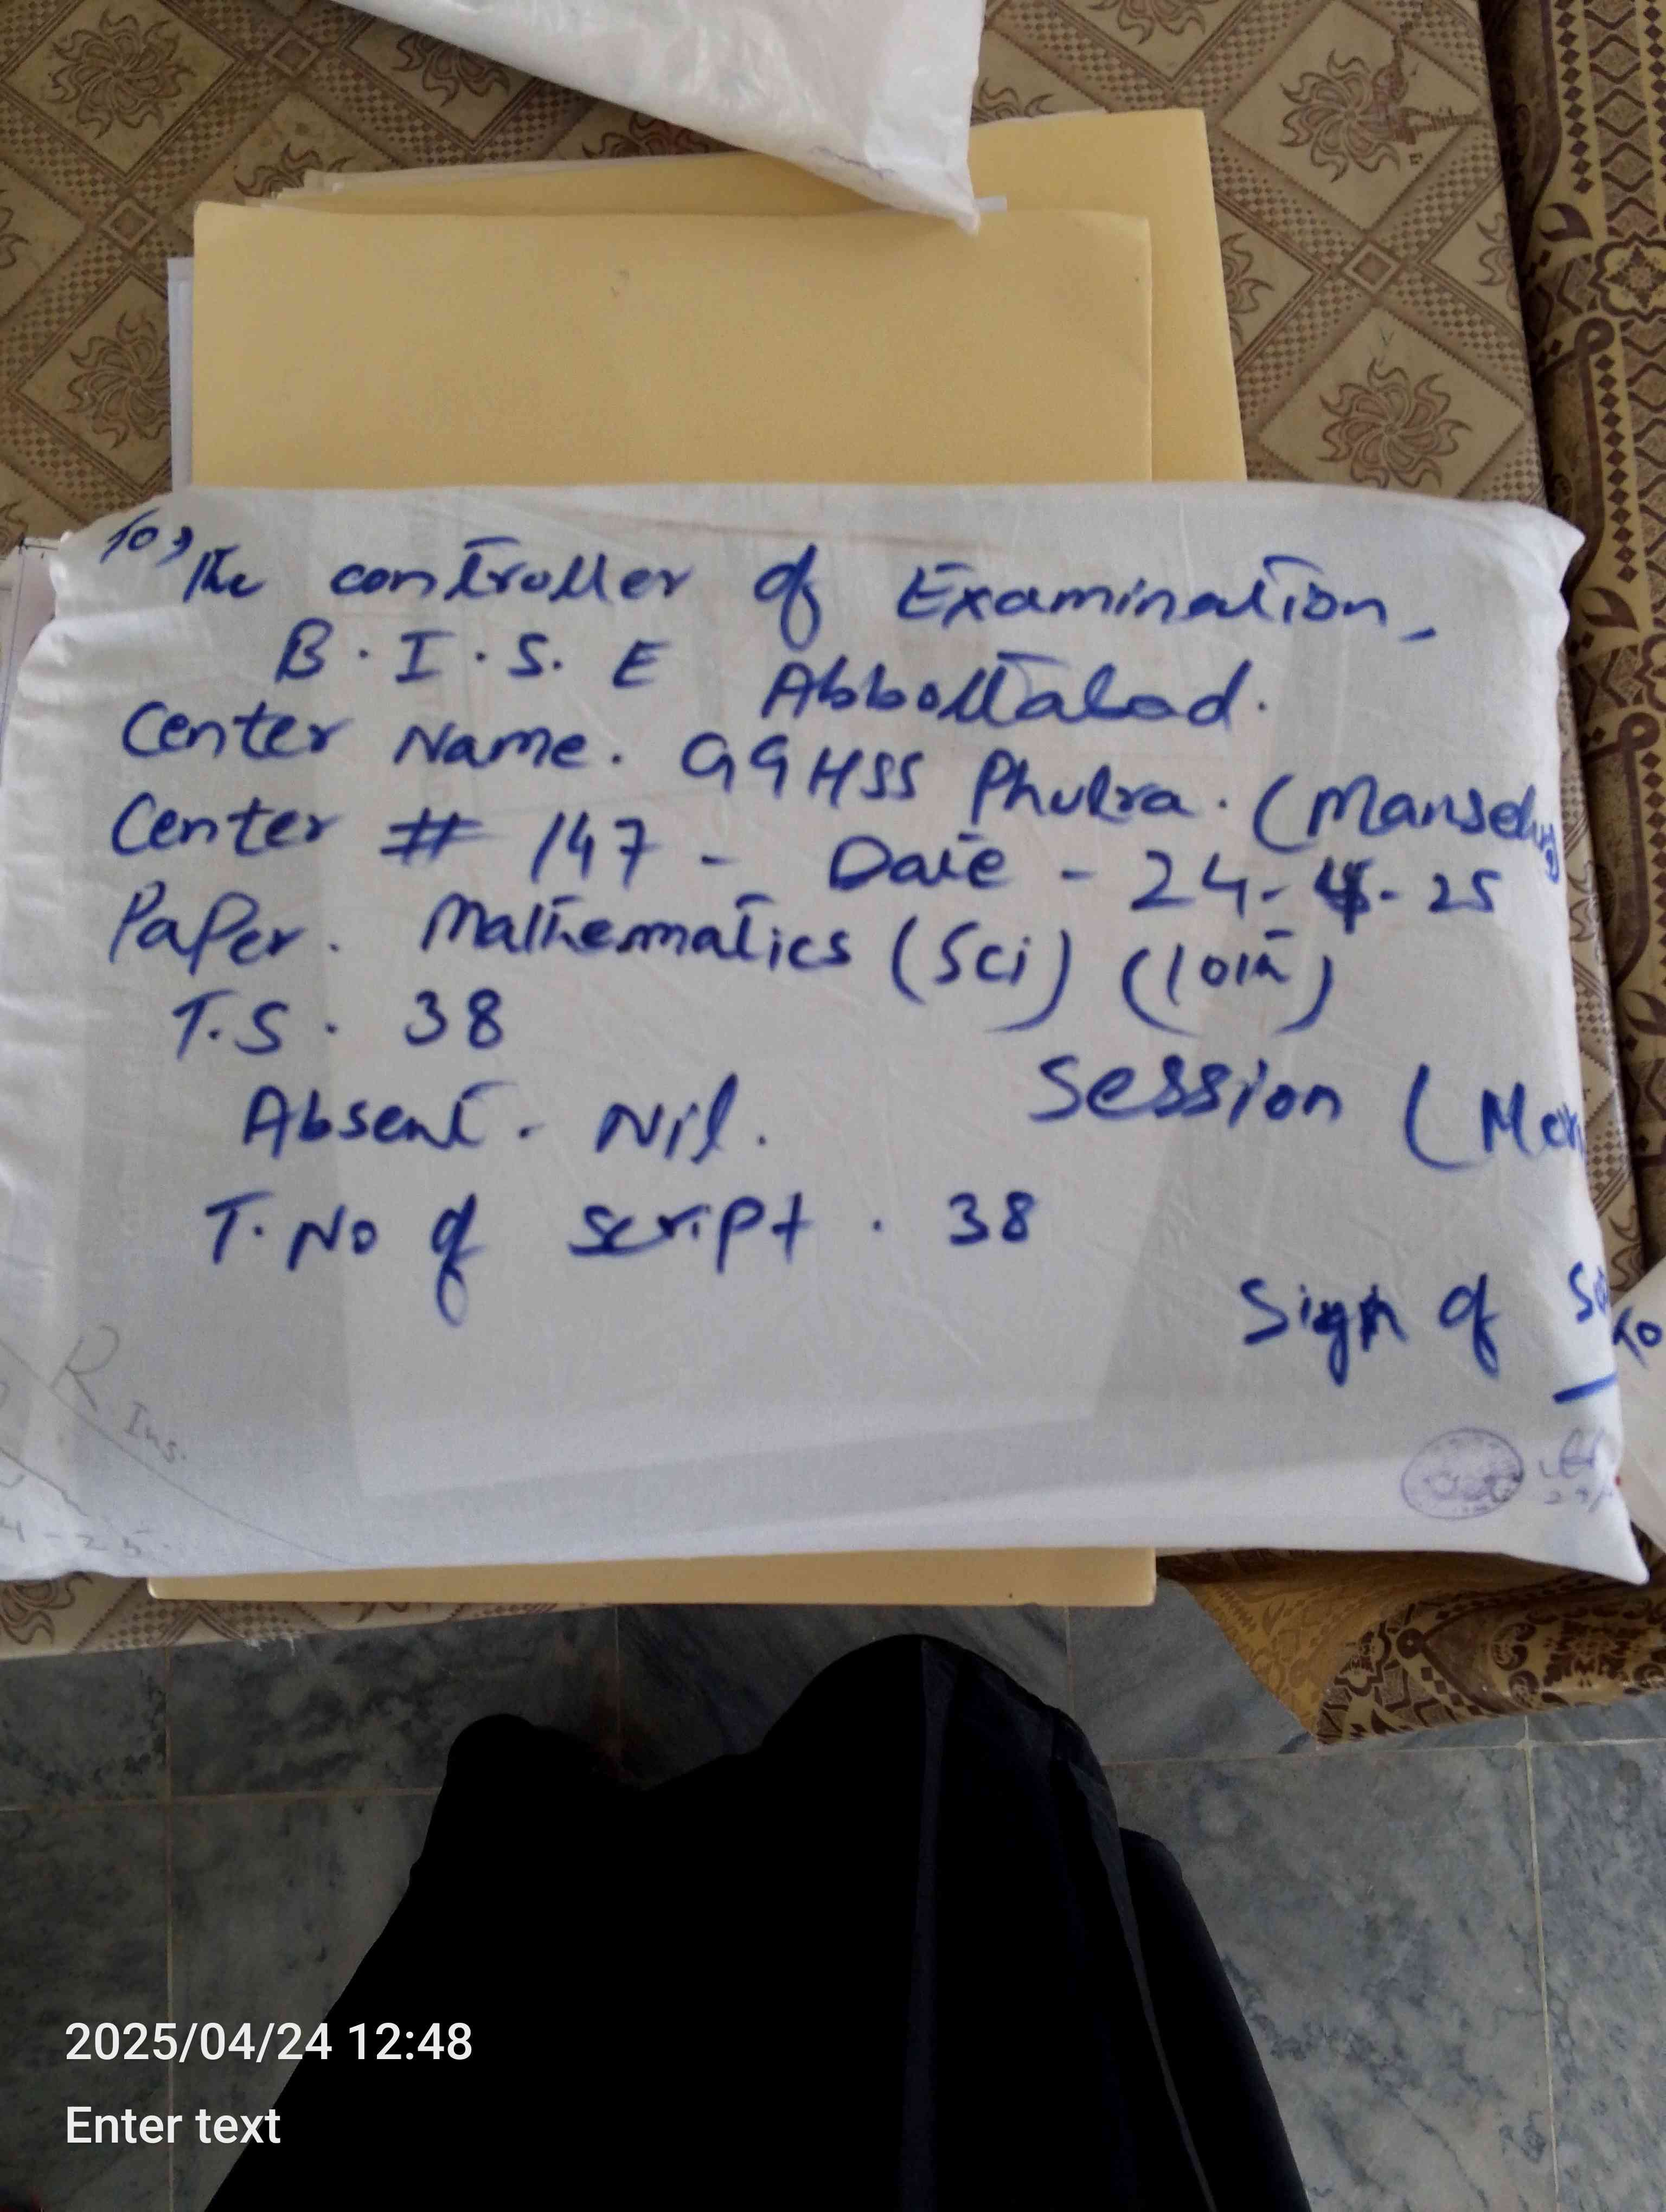 To,
The controller of Examination,
B.I.S.E Abbottabad.
Center Name. GGHSS Phulra. (Mansehra
Center # 147 - Date - 24-4-25
Paper. Mathematics (Sci) (10th)
T.S. 38
Absent. Nil. Session (Mor
T. No of script. 38
Sign of
To
R Ins.
4-25
2025/04/24 12:48
Enter text